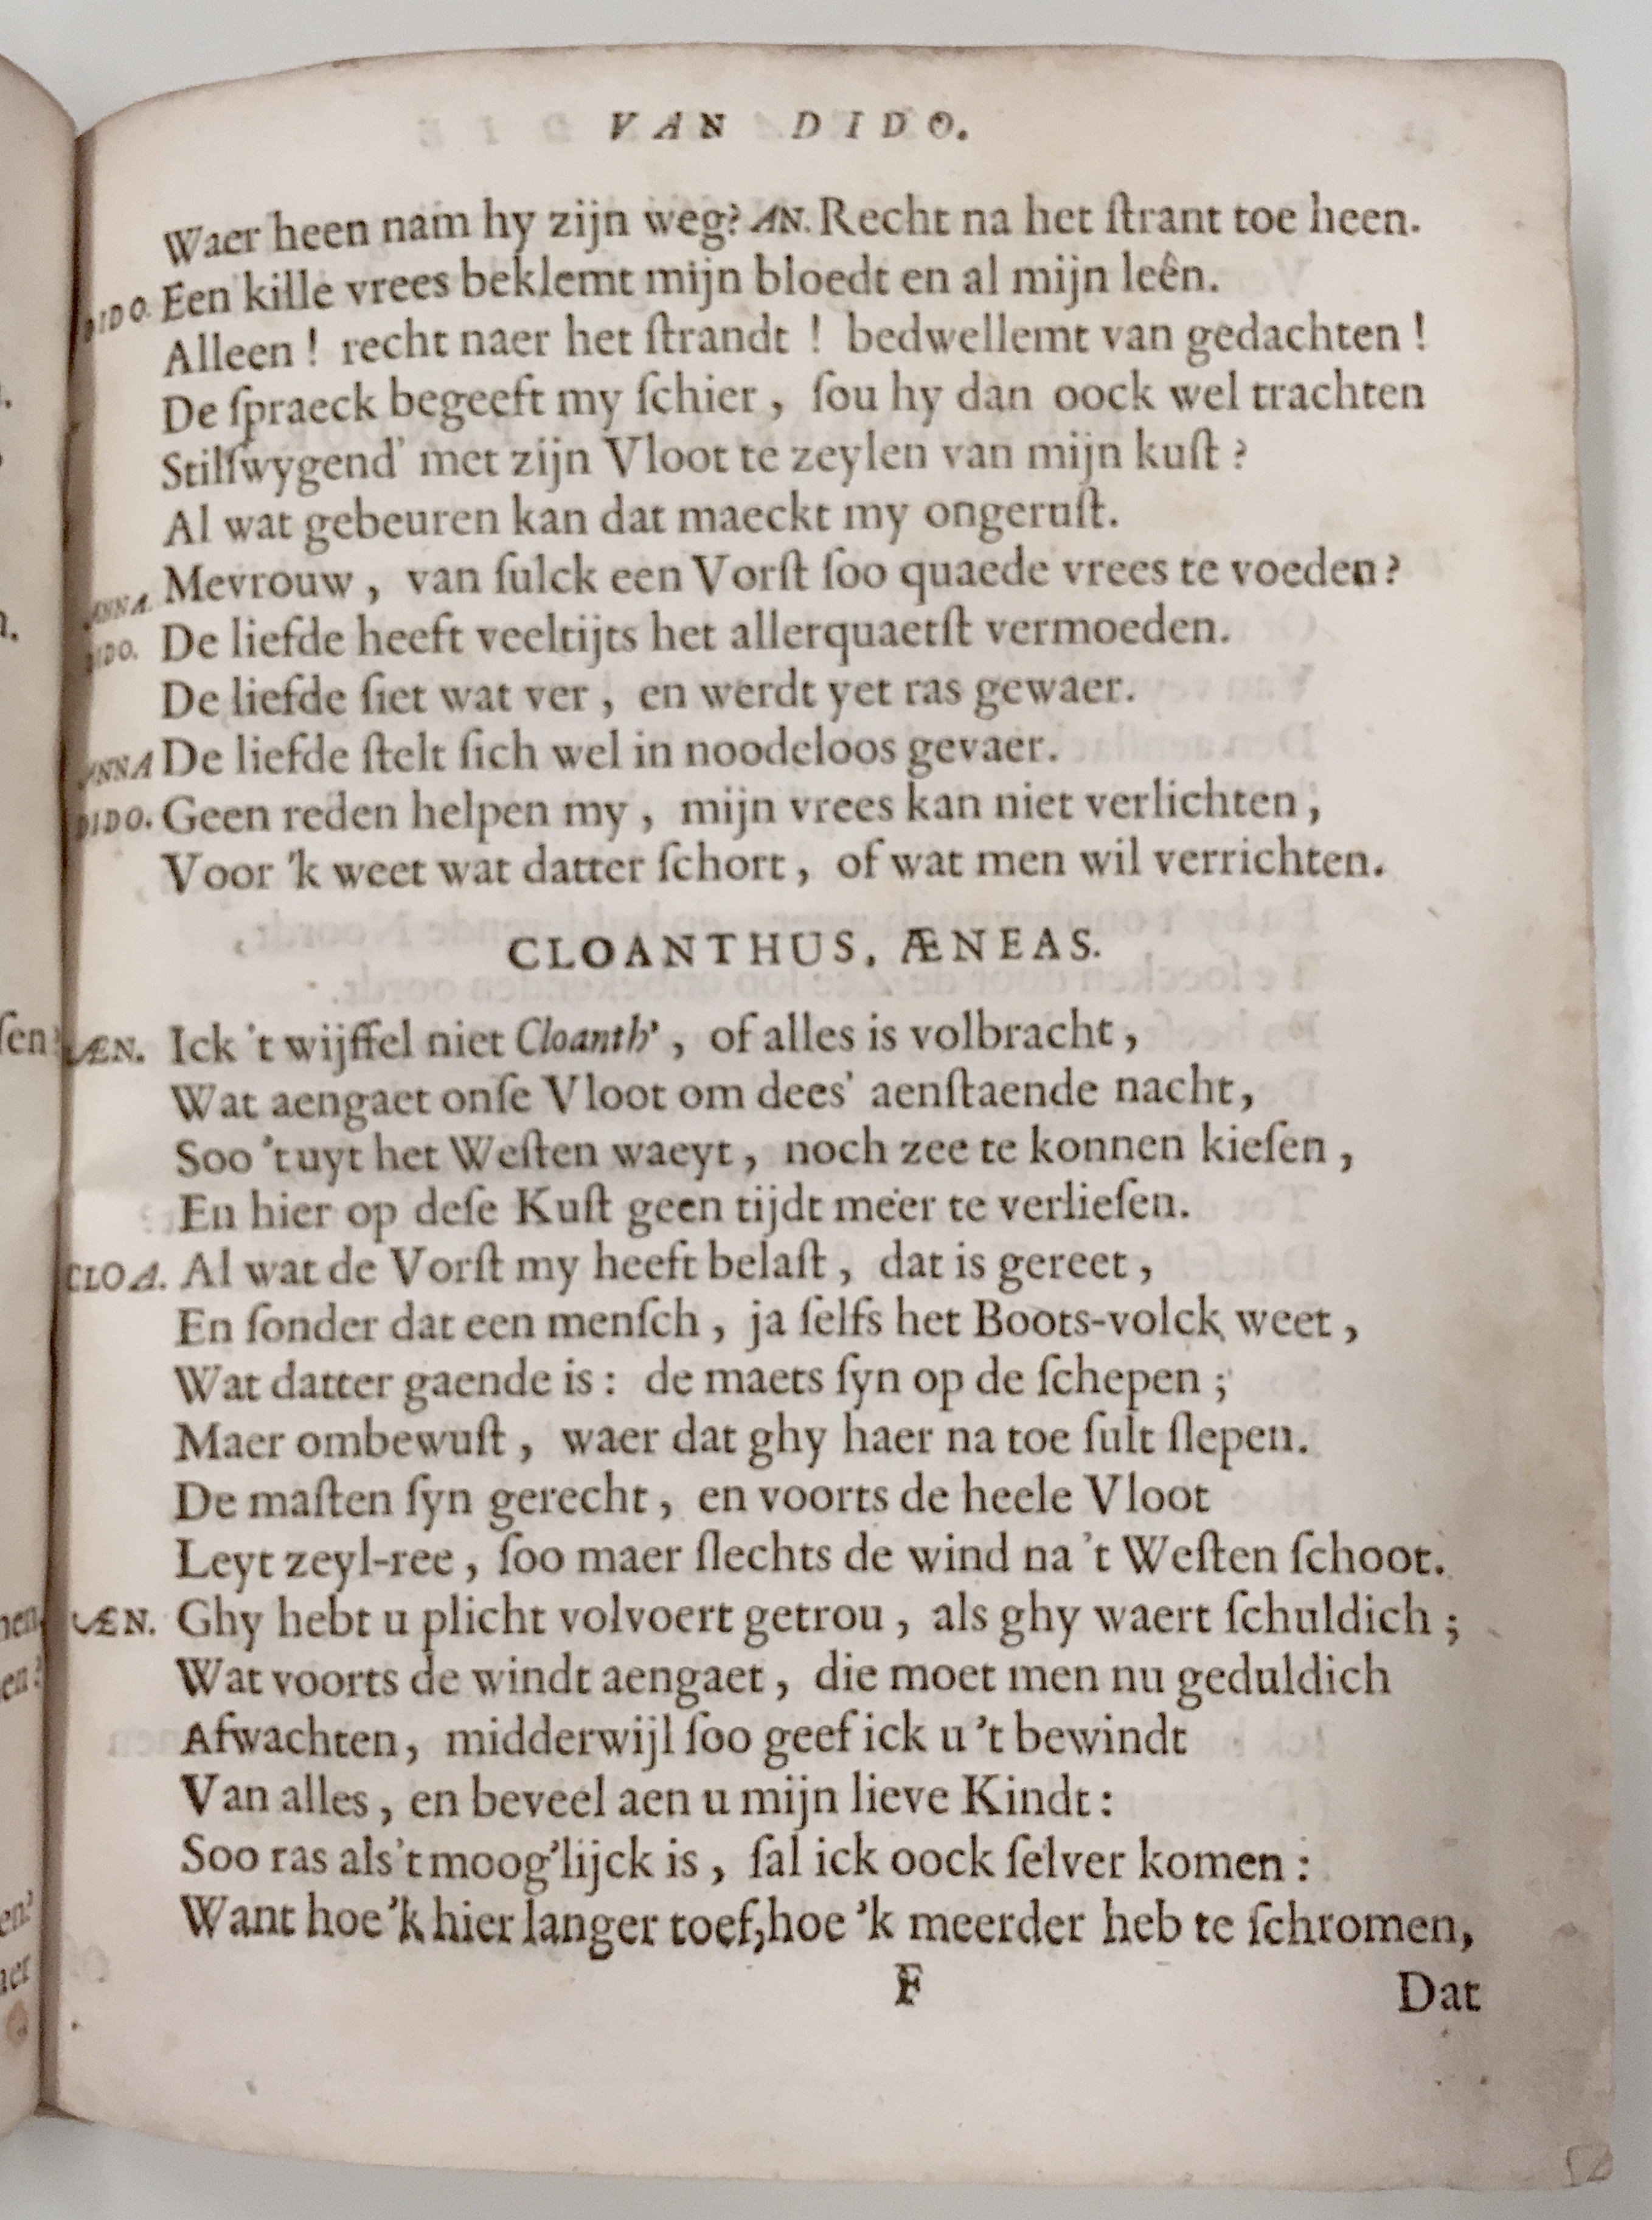 VAN DIDO.
Waer heen nam hy zijn weg? AN. Recht na het ſtrant toe heen.
DIDO. Een kille vrees beklemt mijn bloedt en al mijn leên.
Alleen ! recht naer het ſtrandt ! bedwellemt van gedachten !
De ſpraeck begeeft my ſchier , ſou hy dan oock wel trachten
Stilſwygend' met zijn Vloot te zeylen van mijn kuſt ?
Al wat gebeuren kan dat maeckt my ongeruſt.
ANNA. Mevrouw , van ſulck een Vorſt ſoo quaede vrees te voeden?
DIDO. De liefde heeft veeltijts het allerquaetſt vermoeden.
De liefde ſiet wat ver , en werdt yet ras gewaer.
ANNA De liefde ſtelt ſich wel in noodeloos gevaer.
DIDO. Geen reden helpen my , mijn vrees kan niet verlichten ,
Voor 'k weet wat datter ſchort , of wat men wil verrichten.
CLOANTHUS. ÆNEAS.
ÆN. Ick 't wijffel niet Cloanth' , of alles is volbracht ,
Wat aengaet onſe Vloot om dees' aenſtaende nacht,
Soo 't uyt het Weſten waeyt , noch zee te konnen kieſen ,
En hier op deſe Kuſt geen tijdt meer te verlieſen.
CLOA. Al wat de Vorſt my heeft belaſt , dat is gereet ,
En ſonder dat een menſch , ja ſelfs het Boots-volck weet ,
Wat datter gaende is : de maets ſyn op de ſchepen ;
Maer ombewuſt , waer dat ghy haer na toe ſult ſlepen.
De maſten ſyn gerecht , en voorts de heele Vloot
Leyt zeyl-ree , ſoo maer ſlechts de wind na 't Weſten ſchoot.
ÆN. Ghy hebt u plicht volvoert getrou , als ghy waert ſchuldich ;
Wat voorts de windt aengaet , die moet men nu geduldich
Afwachten , midderwijl ſoo geef ick u 't bewindt
Van alles , en beveel aen u mijn lieve Kindt :
Soo ras als 't moog'lijck is , ſal ick oock ſelver komen :
Want hoe 'k hier langer toef, hoe 'k meerder heb te ſchromen,
F
Dat